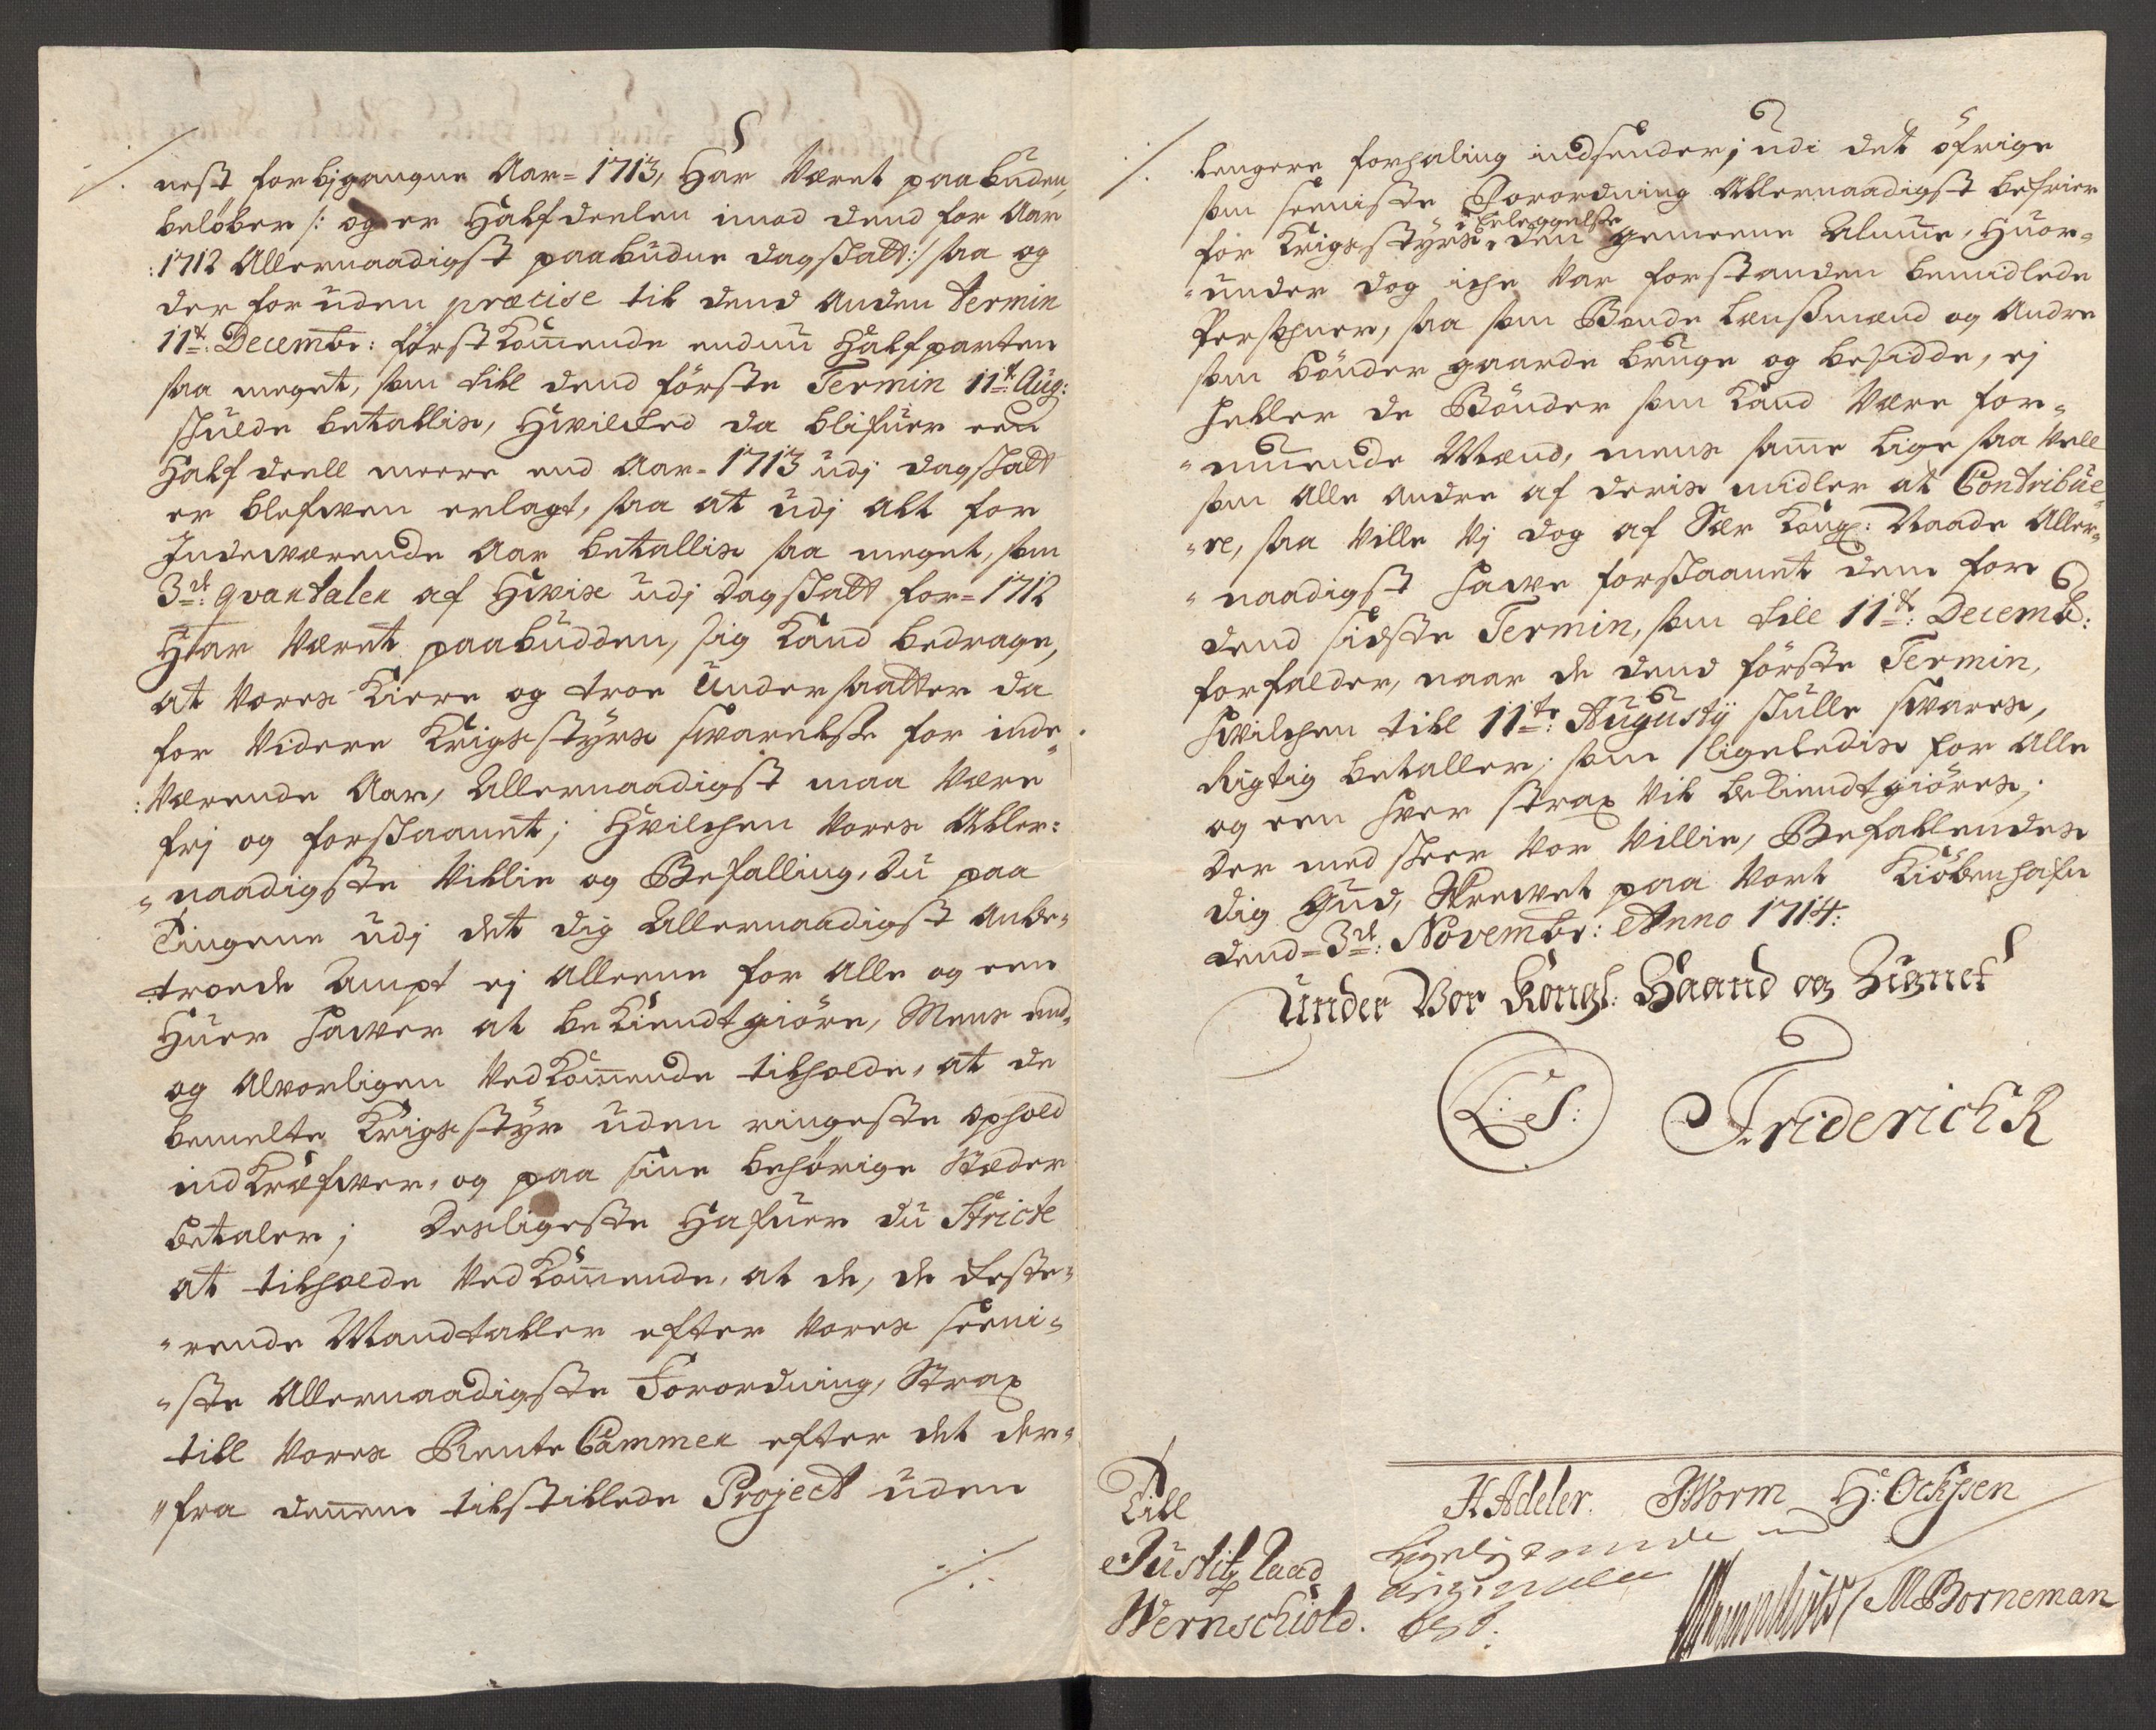 nest forbigangne Aar=1713, Har Været paabuden,
beløber /: og er Halfdeelen imod dend for Aar
:1712 Allernaadigst paabudne dagskatt :/ saa og
der foruden præcise til dend Anden Termin
11te: Decembr: førstkom̄ende endnu Halfparten
saa meget, som till dend första Termin 11te: Aug:
skulde betallis, Hvilcked da blifuer een
Half deell meere end Aar=1713 udj dagskatt
er blefwen erlagt, saa at udj alt for
Indeværende Aar betallis saa meget, som
3de: qvartaler af Hwis udj dagskatt for=1712
Har Været paabudden, sig kand bedrage,
at Vores Kiere og troe Undersaatter da
for Videre Krigsstyrs swarelse for inde„
:Værende Aar, Allernaadigst maa Være
frj og forskaanet; Hvilchen Vores Aller:
„naadigste Villie og Befalling, du paa
Tingene udj det dig Allernaadigst Anbe„
troede Ampt ej Alleene for Alle og een
Huer hawer at bekiendtgiøre, Mens end„
og Alvorligen Vedkom̄ende tilholde, at de
bemelte Krigsstyr uden ringeste ophold
indkræfwer, og paa sine behørige Stæder
betaler; Desligeste Hafuer du Stricte
at tilholde Vedkom̄ende, at de, de Reste„
„rende Mandtaller efter Vores seeni„
„ste Allernaadigste Forordning, Strax
till Vores Rente Cammer efter det der„
„fra dennem tilstillede Project uden
lengere forhaling indsender; udi det öfrige
som seeniste Forordning Allernaadigst befrier
i Erleggelse
for Krigsstyrs den gemeene Almue, Huor„
„under dog iche Var forstanden bemidlede
Persohner, saa som Bonde Lensmænd og Andre
som bönder gaarde bruge og besidde, ej
heller de Bönder som kand Være for„
„muende Mænd, mens samme lige saa Vell
som Alle Andre af deris midler at Contribue„
„re, saa Ville Vj dog af Sær Kongl: Naade Aller„
„naadigst hawe forskaanet dem for
dend sidste Termin, som till 11te: Decemb:
forfalder, naar de dend förste Termin,
hvilchen till 11te: Augusty skulle svares,
Rigtig betaller; som ligeledis for Alle
og een hver strax Vil bekiendtgiöres,
Der med skeer Vor Villie, Befallendes
dig Gud, Skrevet paa Vort Kiöbenhafn
dend=3de: Novembr: Anno 1714:
Under Vor Kongl: Haand og Zignet
L: S: Friderich R
Till
Justitz Raad
Wernschiold.
H Adeler. J Worm H: Ocksen
Ligelydende med
originalen
test:
M Borneman